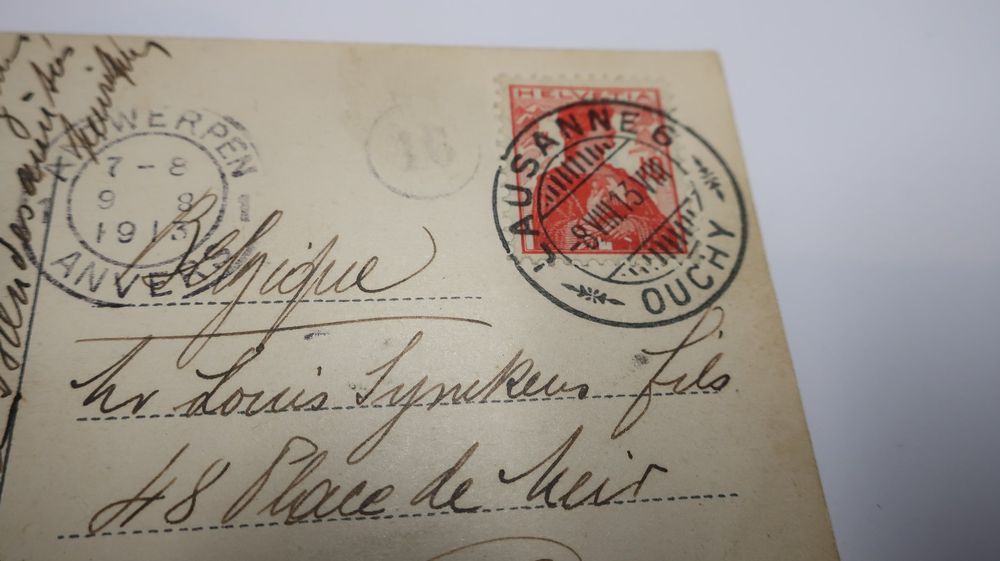 HELVETIA
LAUSANNE 6
8 VIII 13
OUCHY
ANTWERPEN
7-8
9 8
1913
ANVERS
15
Belgique
Mr Louis Synekens fils
48 Place de Meir